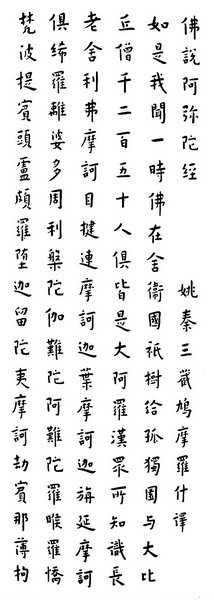 佛說阿弥陀经 姚秦三藏鳩摩羅什譯
如是我聞一時佛在舍衞國祇樹给孤獨園与大比
丘僧千二百五十人俱皆是大阿羅漢眾所知識長
老舍利弗摩訶目揵連摩訶迦葉摩訶迦旃延摩訶
俱絺羅離婆多周利槃陀伽難陀阿難陀羅睺羅憍
梵波提賓頭盧頗羅堕迦留陀夷摩訶劫賓那薄拘